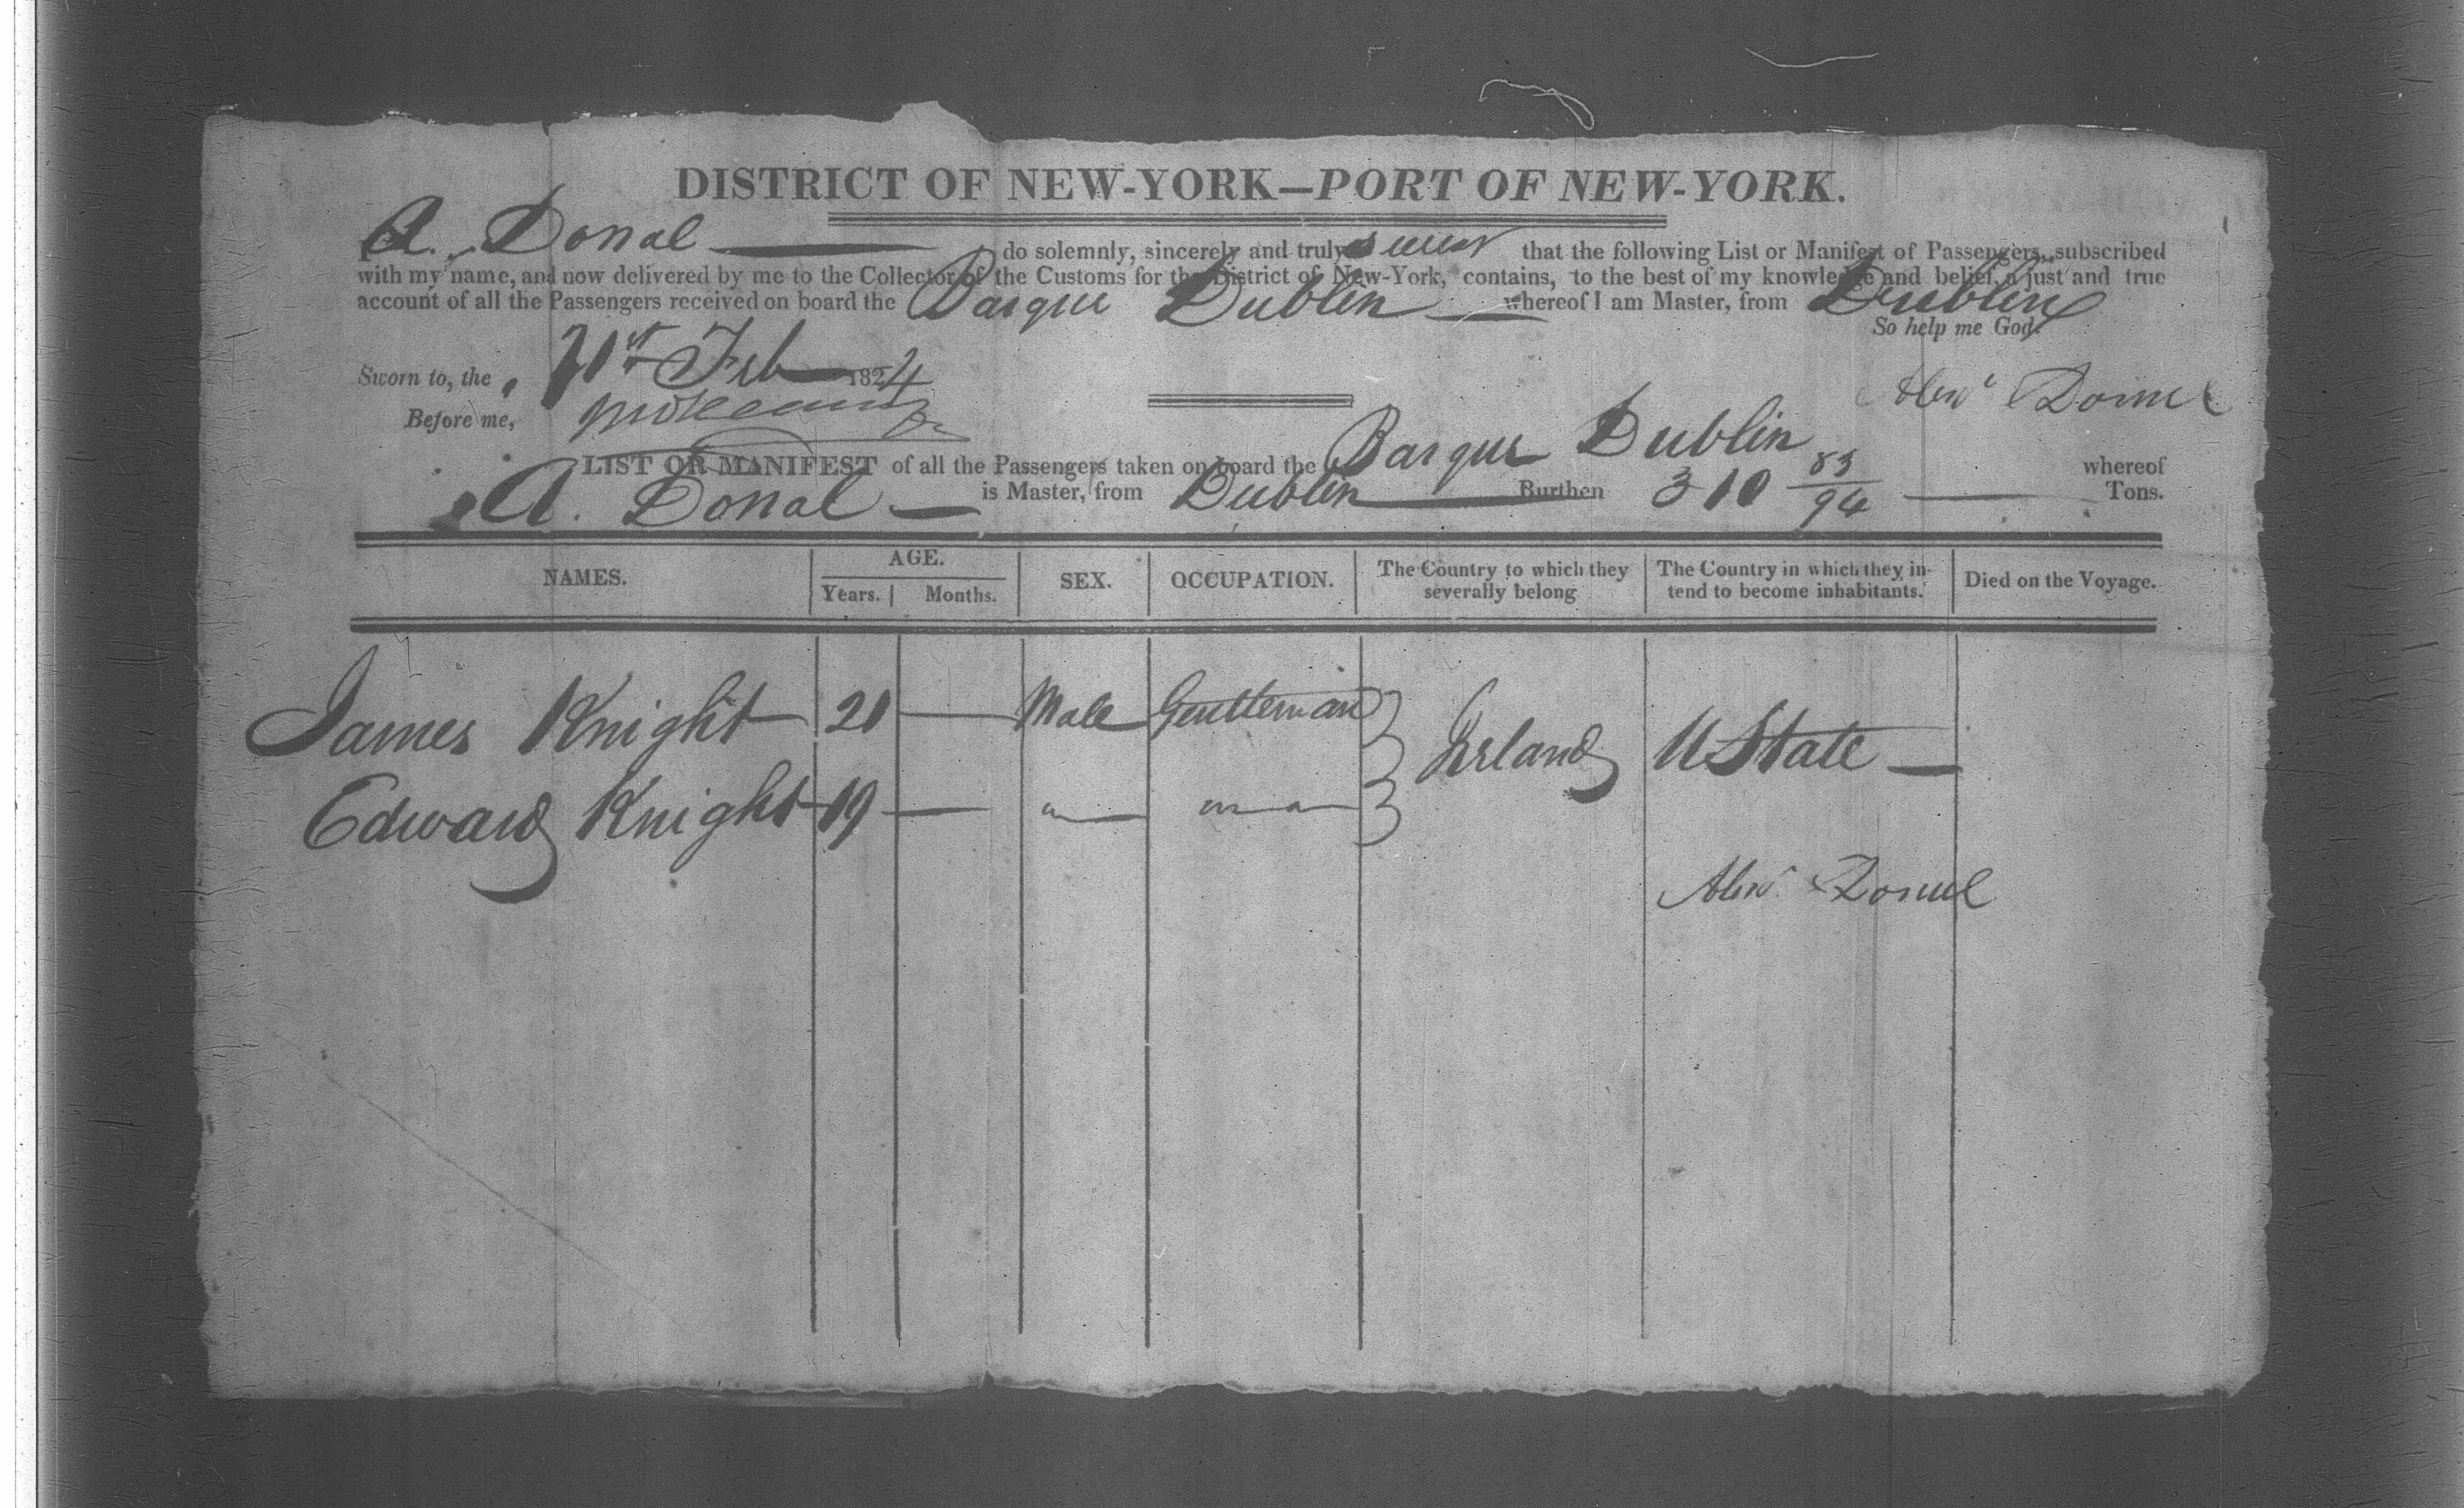 DISTRICT OF NEW-YORK—PORT OF NEW-YORK.
A. Donal do solemnly, sincerely and truly swear that the following List or Manifest of Passengers, subscribed
with my name, and now delivered by me to the Collector of the Customs for the District of New-York, contains, to the best of my knowledge and belief, a just and true
account of all the Passengers received on board the Barque Dublin whereof I am Master, from Dublin
So help me God.
Sworn to, the 21st Feb 1824
Alexr
Before me,
LIST OR MANIFEST of all the Passengers taken on board the Barque Dublin whereof
A. Donal is Master, from Dublin Burthen 310 85/94 Tons.
NAMES. AGE. SEX. OCCUPATION. The Country to which they severally belong The Country in which they intend to become inhabitants. Died on the Voyage.
Years. Months.
James Knight 21 — Male Gentleman
Ireland U State —
Edward Knight 19 — " "
Alexr